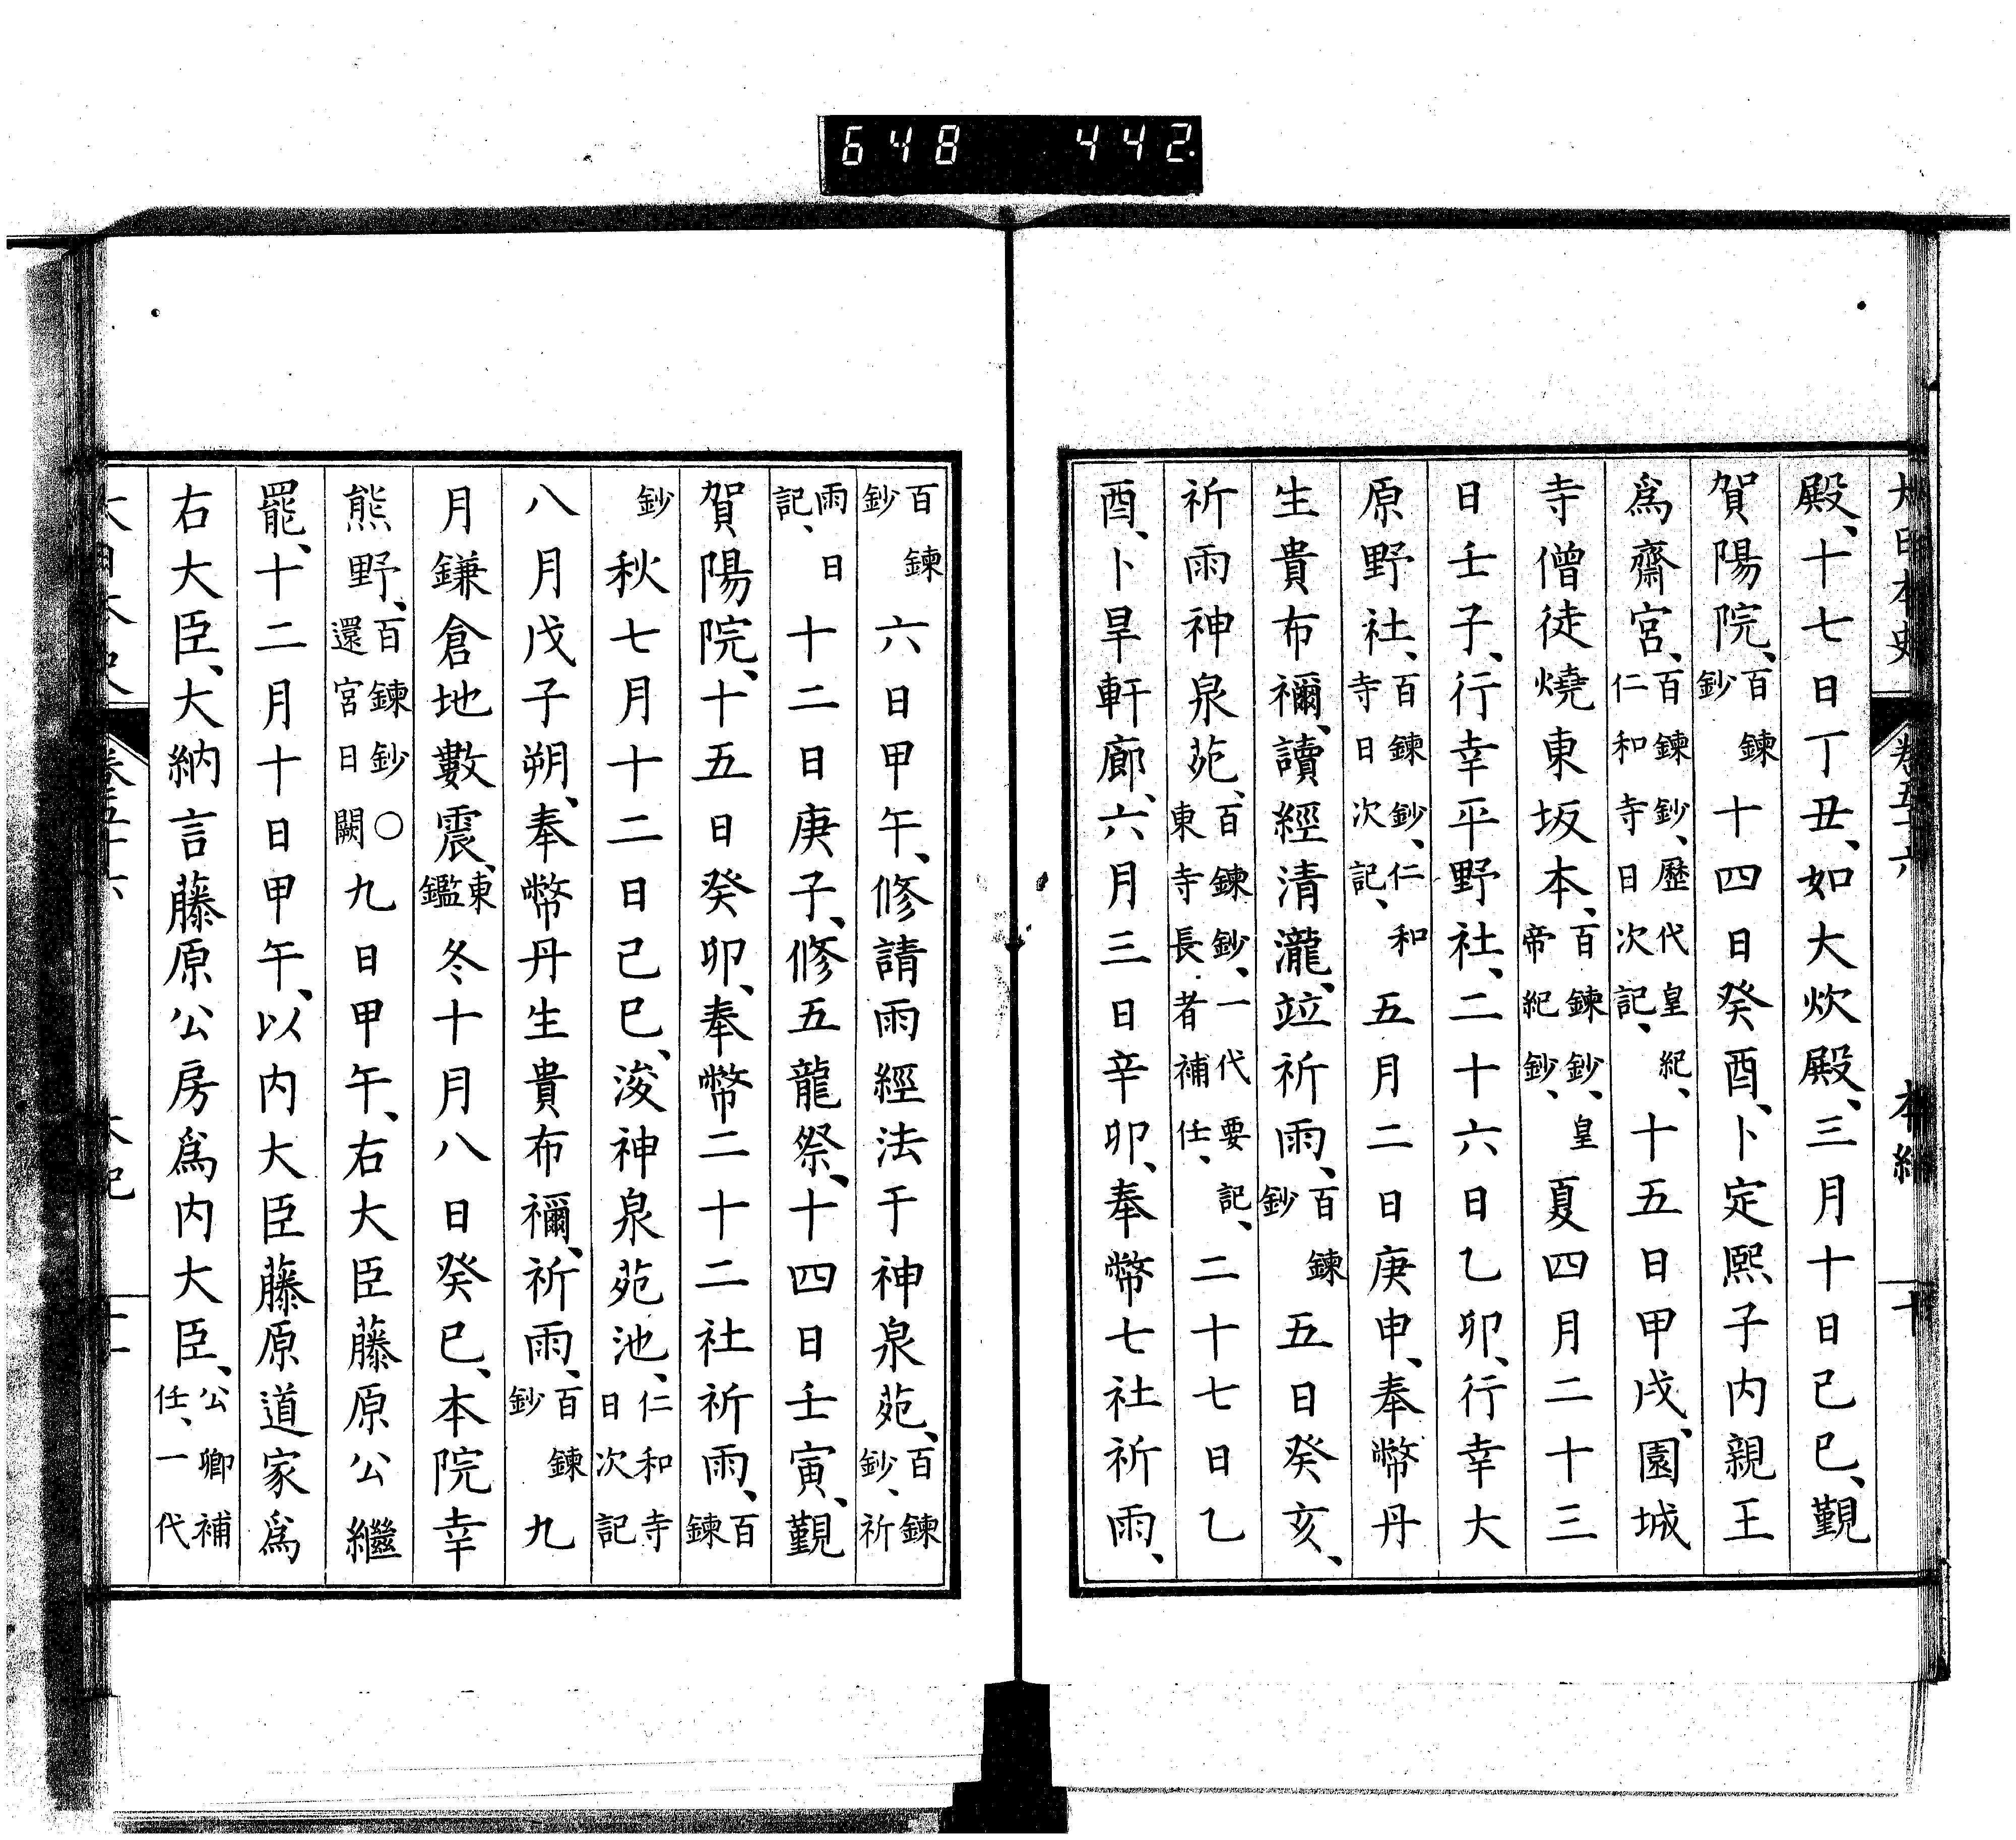 648 442
大日本史 卷五十六 本紀 十
殿、十七日丁丑、如大炊殿、三月十日己巳、覲
賀陽院、百鍊鈔十四日癸酉、卜定熙子內親王
爲齋宮、百鍊鈔、歷代皇紀、仁和寺日次記、十五日甲戌、園城
寺僧徒燒東坂本、百鍊鈔、皇帝紀鈔、夏四月二十三
日壬子、行幸平野社、二十六日乙卯、行幸大
原野社、百鍊鈔、仁和寺日次記、五月二日庚申、奉幣丹
生貴布禰、讀經清瀧、竝祈雨、百鍊鈔五日癸亥、
祈雨神泉苑、百鍊鈔、一代要記、東寺長者補任、二十七日乙
酉、卜旱軒廊、六月三日辛卯、奉幣七社祈雨、
百鍊鈔六日甲午、修請雨經法于神泉苑、百鍊鈔、祈
雨日記、十二日庚子、修五龍祭、十四日壬寅、覲
賀陽院、十五日癸卯、奉幣二十二社祈雨、百鍊
鈔秋七月十二日己巳、浚神泉苑池、仁和寺日次記
八月戊子朔、奉幣丹生貴布禰、祈雨、百鍊鈔九
月鎌倉地數震、東鑑冬十月八日癸巳、本院幸
熊野、百鍊鈔○還宮日闕九日甲午、右大臣藤原公繼
罷、十二月十日甲午、以内大臣藤原道家爲
右大臣、大納言藤原公房爲内大臣、公卿補任、一代
大日本史 卷五十六 本紀 十一